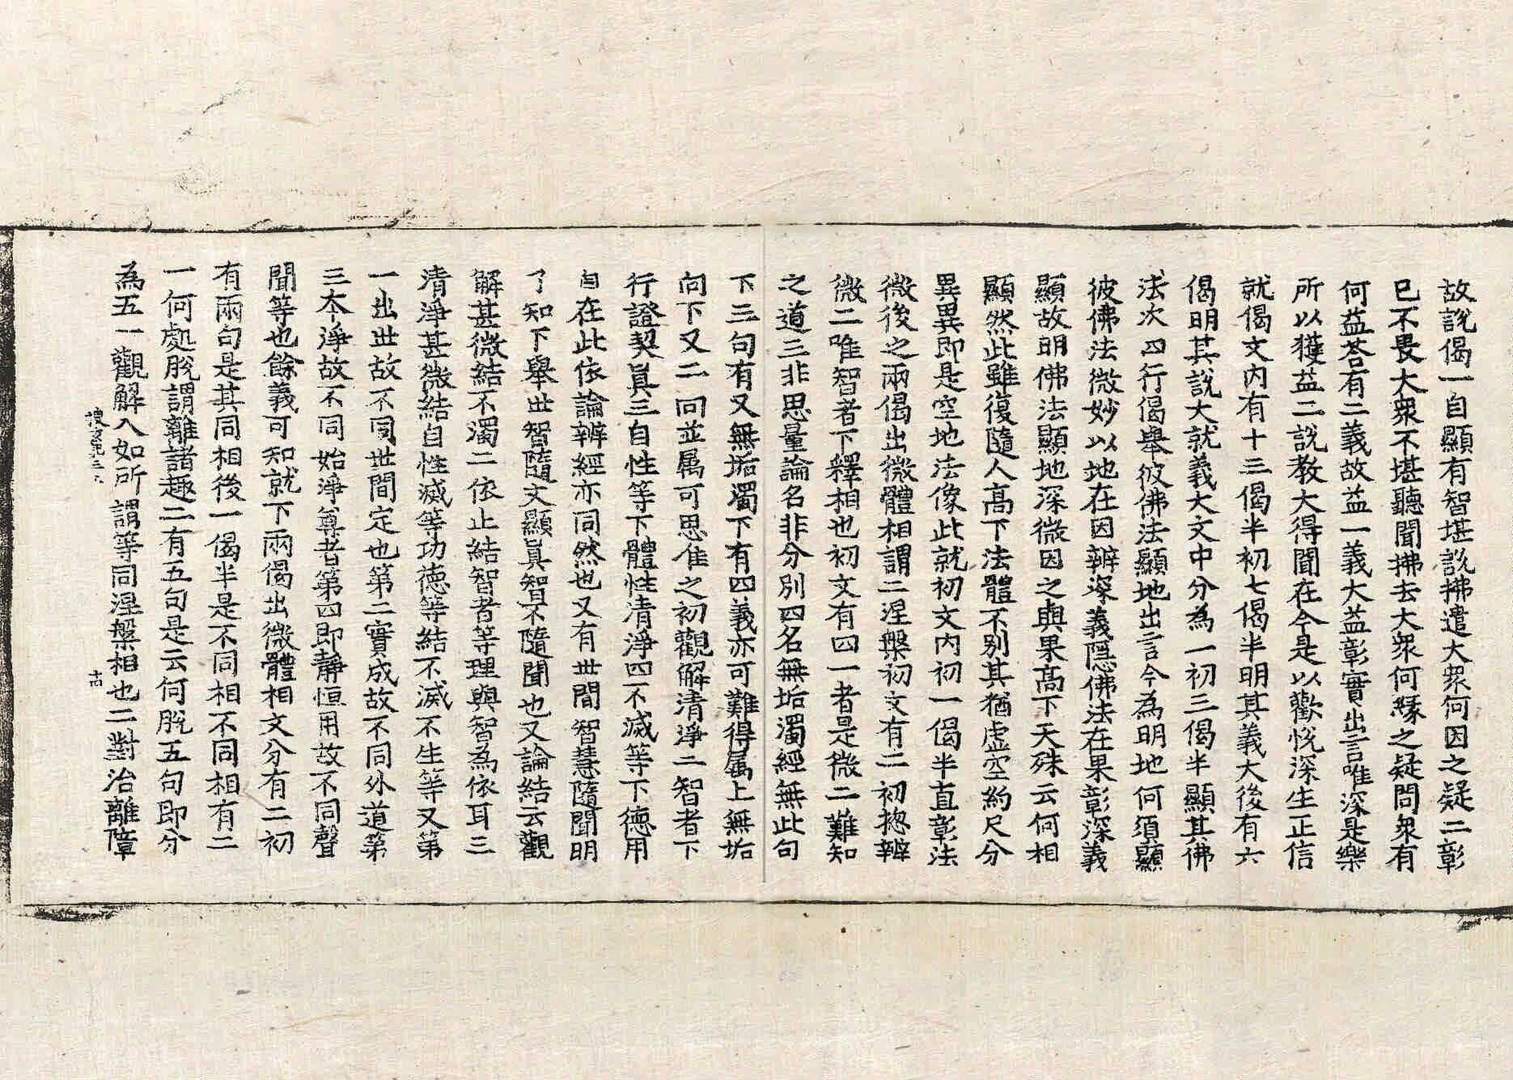 故說偈一自顯有智堪說拂遣大衆何因之疑二彰
已不畏大衆不堪聽聞拂去大衆何緣之疑問衆有
何益荅有二義故益一義大益彰實出言唯深是樂
所以獲益二說教大得聞在今是以歡悅深生正信
就偈文內有十三偈半初七偈半明其義大後有六
偈明其說大就義大文中分為一初三偈半顯其佛
法次四行偈舉彼佛法顯地出言今為明地何須顯
彼佛法微妙以地在因辨深義隱佛法在果彰深義
顯故明佛法顯地深微因之與果高下天殊云何相
顯然此雖復隨人高下法體不別其猶虛空約尺分
異異即是空地法像此就初文內初一偈半直彰法
微後之兩偈出微體相謂二涅槃初文有二初揔辨
微二唯智者下釋相也初文有四一者是微二難知
之道三非思量論名非分別四名無垢濁經無此句
下三句有又無垢濁下有四義亦可難得属上無垢
向下又二向並属可思惟之初觀解清淨二智者下
行證契真三自性等下體性清淨四不滅等下德用
自在此依論辨經亦同然也又有世間智慧隨聞明
了知下舉世智隨文顯真智不隨聞也又論結云觀
解甚微結不濁二依止結智者等理與智為依耳三
清淨甚微結自性滅等功德等結不滅不生等又第
一出世故不同世間定也第二實成故不同外道第
三本淨故不同始淨尊者第四即靜恒用故不同聲
聞等也餘義可知就下兩偈出微體相文分有二初
有兩句是其同相後一偈半是不同相不同相有二
一何處脫謂離諸趣二有五句是云何脫五句即分
為五一觀解入如所謂等同涅槃相也二對治離障